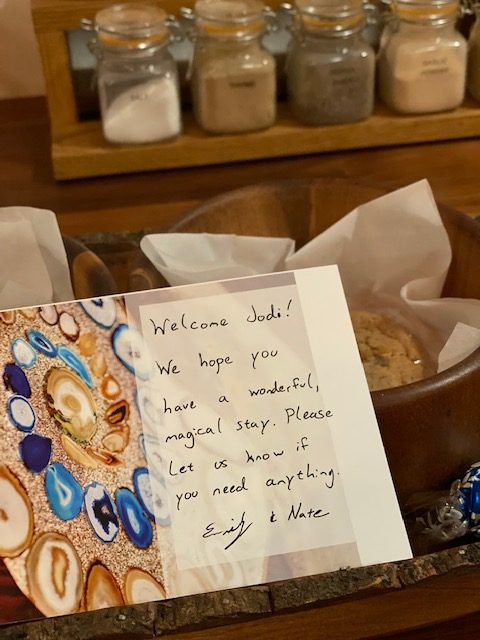 SALT
GARLIC
POWDER
Welcome Jodi!
We hope you
have a wonderful,
magical stay. Please
Let us know if
you need anything.
Emily & Nate